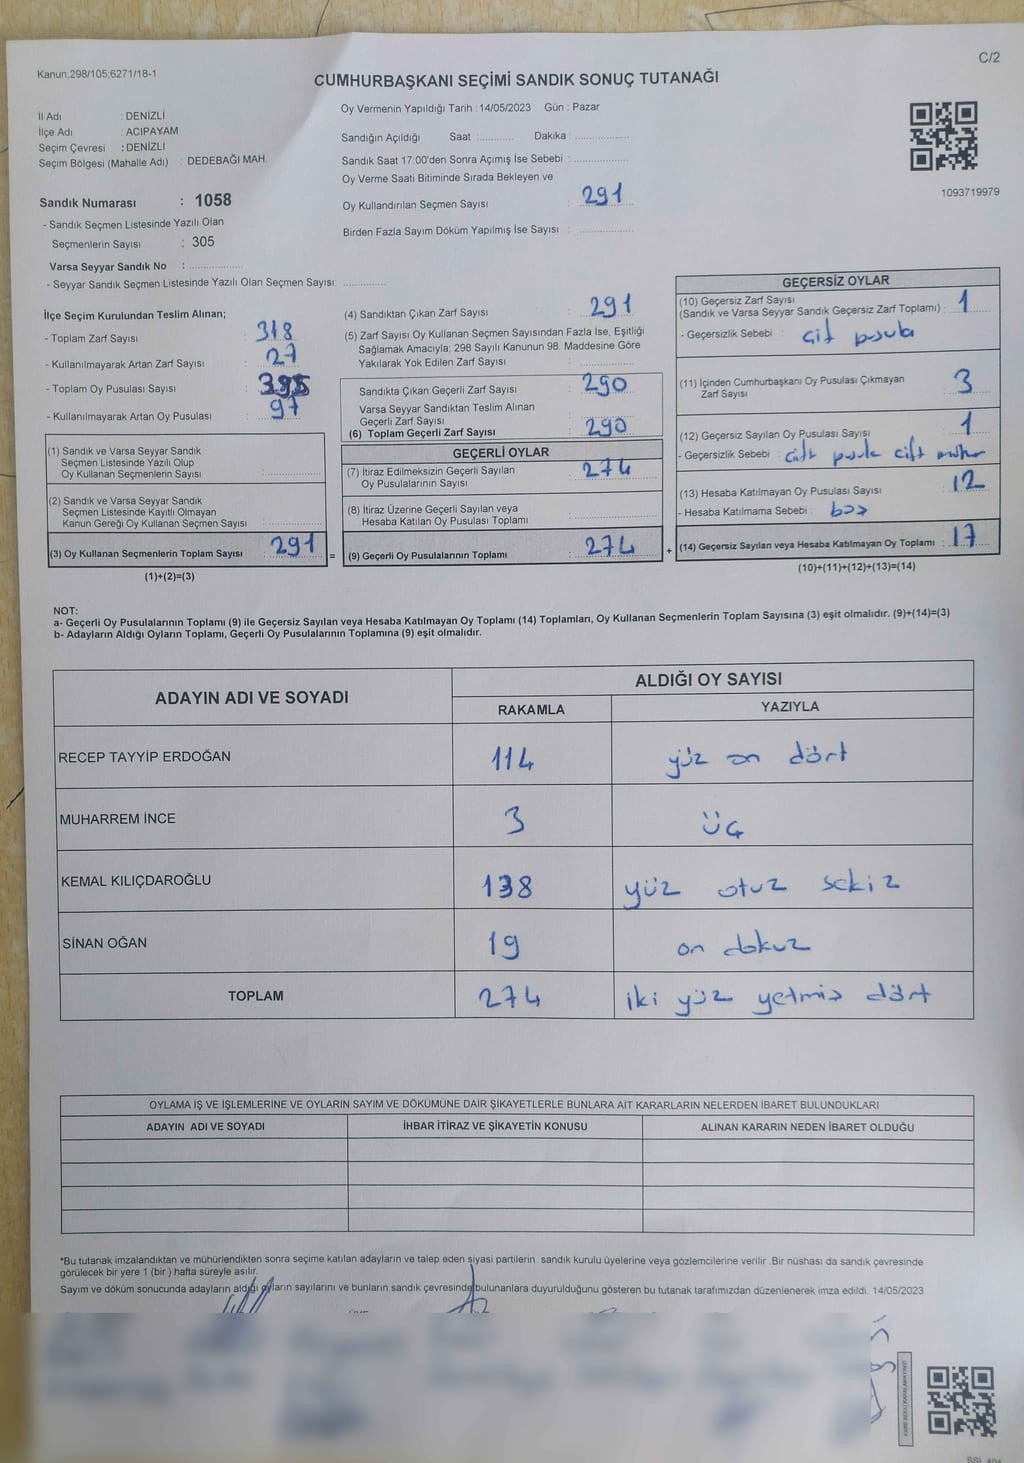 Kanun;298/105;6271/18-1
C/2
CUMHURBAŞKANI SEÇİMİ SANDIK SONUÇ TUTANAĞI
İl Adı : DENİZLİ
İlçe Adı : ACIPAYAM
Seçim Çevresi : DENİZLİ
Seçim Bölgesi (Mahalle Adı) : DEDEBAĞI MAH.
Sandık Numarası : 1058
- Sandık Seçmen Listesinde Yazılı Olan
Seçmenlerin Sayısı : 305
Varsa Seyyar Sandık No : ..................
- Seyyar Sandık Seçmen Listesinde Yazılı Olan Seçmen Sayısı: ..............
Oy Vermenin Yapıldığı Tarih : 14/05/2023 Gün : Pazar
Sandığın Açıldığı Saat :............ Dakika ..................
Sandık Saat 17:00'den Sonra Açımış İse Sebebi : ..................
Oy Verme Saati Bitiminde Sırada Bekleyen ve
Oy Kullandırılan Seçmen Sayısı : 291
Birden Fazla Sayım Döküm Yapılmış İse Sayısı : ..................
1093719979
İlçe Seçim Kurulundan Teslim Alınan;
- Toplam Zarf Sayısı : 318
- Kullanılmayarak Artan Zarf Sayısı : 27
- Toplam Oy Pusulası Sayısı :
- Kullanılmayarak Artan Oy Pusulası : 97
(1) Sandık ve Varsa Seyyar Sandık
Seçmen Listesinde Yazılı Olup
Oy Kullanan Seçmenlerin Sayısı : ..................
(2) Sandık ve Varsa Seyyar Sandık
Seçmen Listesinde Kayıtlı Olmayan
Kanun Gereği Oy Kullanan Seçmen Sayısı : ..................
(3) Oy Kullanan Seçmenlerin Toplam Sayısı : 291
(1)+(2)=(3)
=
(4) Sandıktan Çıkan Zarf Sayısı : 291
(5) Zarf Sayısı Oy Kullanan Seçmen Sayısından Fazla İse, Eşitliği
Sağlamak Amacıyla; 298 Sayılı Kanunun 98. Maddesine Göre
Yakılarak Yok Edilen Zarf Sayısı : ..................
Sandıkta Çıkan Geçerli Zarf Sayısı : 290
Varsa Seyyar Sandıktan Teslim Alınan
Geçerli Zarf Sayısı :
(6) Toplam Geçerli Zarf Sayısı : 290
GEÇERLİ OYLAR
(7) İtiraz Edilmeksizin Geçerli Sayılan
Oy Pusulalarının Sayısı : 274
(8) İtiraz Üzerine Geçerli Sayılan veya
Hesaba Katılan Oy Pusulası Toplamı : ..................
(9) Geçerli Oy Pusulalarının Toplamı : 274
+
GEÇERSİZ OYLAR
(10) Geçersiz Zarf Sayısı
(Sandık ve Varsa Seyyar Sandık Geçersiz Zarf Toplamı) : 1
- Geçersizlik Sebebi : çift pusula
(11) İçinden Cumhurbaşkanı Oy Pusulası Çıkmayan
Zarf Sayısı : 3
(12) Geçersiz Sayılan Oy Pusulası Sayısı : 1
- Geçersizlik Sebebi : çift pusula çift mühür
(13) Hesaba Katılmayan Oy Pusulası Sayısı : 12
- Hesaba Katılmama Sebebi : boş
(14) Geçersiz Sayılan veya Hesaba Katılmayan Oy Toplamı : 17
(10)+(11)+(12)+(13)=(14)
NOT:
a- Geçerli Oy Pusulalarının Toplamı (9) ile Geçersiz Sayılan veya Hesaba Katılmayan Oy Toplamı (14) Toplamları, Oy Kullanan Seçmenlerin Toplam Sayısına (3) eşit olmalıdır. (9)+(14)=(3)
b- Adayların Aldığı Oyların Toplamı, Geçerli Oy Pusulalarının Toplamına (9) eşit olmalıdır.
ADAYIN ADI VE SOYADI
ALDIĞI OY SAYISI
RAKAMLA YAZIYLA
RECEP TAYYİP ERDOĞAN 114 yüz on dört
MUHARREM İNCE 3 üç
KEMAL KILIÇDAROĞLU 138 yüz otuz sekiz
SİNAN OĞAN 19 on dokuz
TOPLAM 274 iki yüz yetmiş dört
OYLAMA İŞ VE İŞLEMLERİNE VE OYLARIN SAYIM VE DÖKÜMÜNE DAİR ŞİKAYETLERLE BUNLARA AİT KARARLARIN NELERDEN İBARET BULUNDUKLARI
ADAYIN ADI VE SOYADI İHBAR İTİRAZ VE ŞİKAYETİN KONUSU ALINAN KARARIN NEDEN İBARET OLDUĞU
*Bu tutanak imzalandıktan ve mühürlendikten sonra seçime katılan adayların ve talep eden siyasi partilerin sandık kurulu üyelerine veya gözlemcilerine verilir. Bir nüshası da sandık çevresinde
görülecek bir yere 1 (bir ) hafta süreyle asılır.
Sayım ve döküm sonucunda adayların aldığı oyların sayılarını ve bunların sandık çevresinde bulunanlara duyurulduğunu gösteren bu tutanak tarafımızdan düzenlenerek imza edildi. 14/05/2023